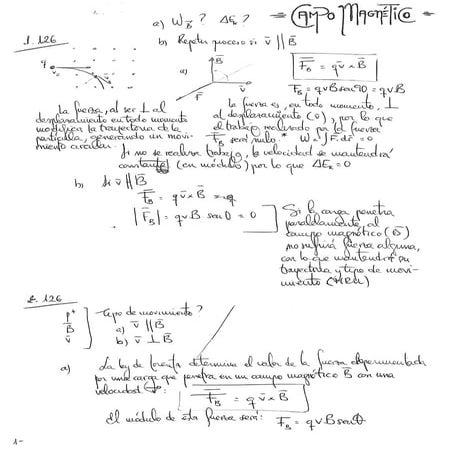 = CAMPO MAGNÉTICO =
1.126
a) W_B? ΔE_c?
b) Repetir proceso si v̄ ∥ B̄
q v̄
a) B̄ v̄ F̄
F̄_B = q v̄ × B̄
F_B = qvB sen 90 = qvB
La fuerza, al ser ⊥ al
desplazamiento en todo momento
modifica la trayectoria de la
partícula, generando un movi-
miento circular.
la fuerza es, en todo momento, ⊥
al desplazamiento (v̄), por lo que
el trabajo realizado por la fuerza
F̄_B será nulo. W = ∫ F̄·dr̄ = 0
Si no se realiza trabajo, la velocidad se mantendrá
constante (en módulo) por lo que ΔE_c = 0
b) Si v̄ ∥ B̄
F̄_B = q v̄ × B̄
|F̄_B| = qvB sen 0 = 0
Si la carga penetra
paralelamente al
campo magnético (B̄)
no sufrirá fuerza alguna,
con lo que mantendrá su
trayectoria y tipo de movi-
miento (MRU)
2.126
p⁺
B̄
v̄
Tipo de movimiento?
a) v̄ ∥ B̄
b) v̄ ⊥ B̄
a) La ley de Lorentz determina el valor de la fuerza experimentada
por una carga que penetra en un campo magnético B̄ con una
velocidad v̄:
F̄_B = q v̄ × B̄
El módulo de esta fuerza será: F_B = qvB sen θ
1-